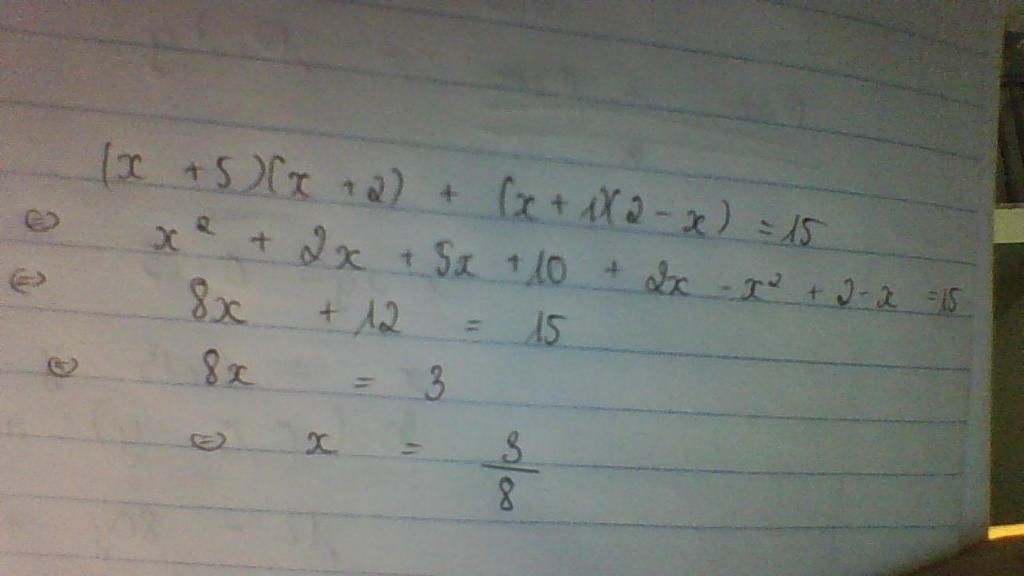 (x + 5)(x + 2) + (x + 1)(2 - x) = 15
⇔ x² + 2x + 5x + 10 + 2x - x² + 2 - x = 15
⇔ 8x + 12 = 15
⇔ 8x = 3
⇔ x = 3/8